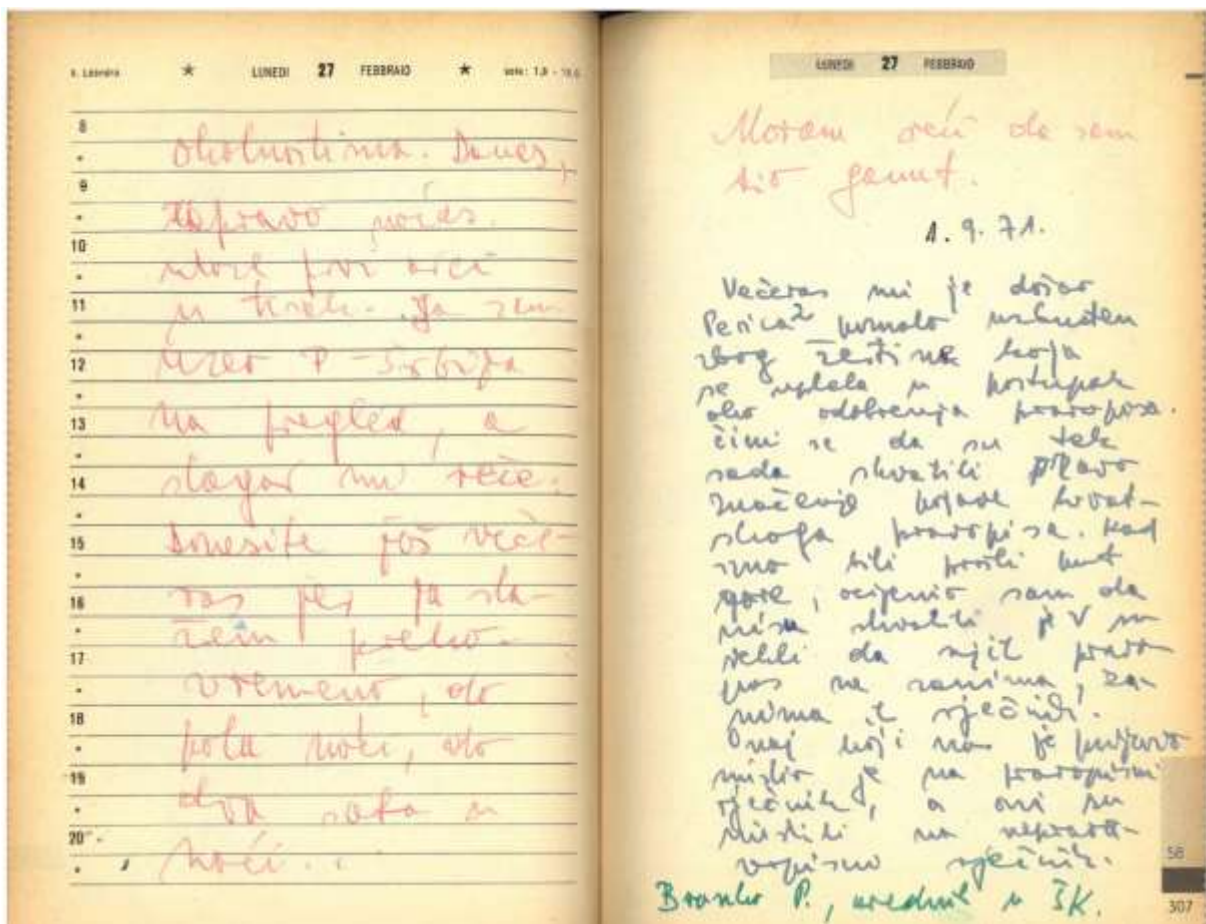 LUNEDI 27 FEBBRAIO
8
okolnostima. Danas,
9
zapravo noćas.
10
11
u tisak. Ja sam
12
uzeo P - Š
13
na pregled, a
14
slagar mi reče:
15
Donesite još veče-
16
ras jer ja sla-
17
žem preko-
vremeno, do
18
pola noći, do
19
dva sata u
20
noći...
LUNEDI 27 FEBBRAIO
Moram reći da sam
bio ganut.
1.9.71.
Večeras mi je došao
Perica² pomalo uzbuđen
zbog žestine koja
se uplela u postupak
oko odobrenja pravopisa.
Čini se da su tek
sada shvatili pravo
značenje pojave hrvat-
skoga pravopisa. Kad
smo bili prošli put
gore, ocijenio sam da
nisu shvatili jer su
rekli da njih pravo-
pis ne zanima, za-
nima ih rječnik.
Onaj koji nas je prijavio
mislio je na pravopisni
rječnik, a oni su
mislili na nepravo-
pisni rječnik.
Branko P., urednik u ŠK.
58
307